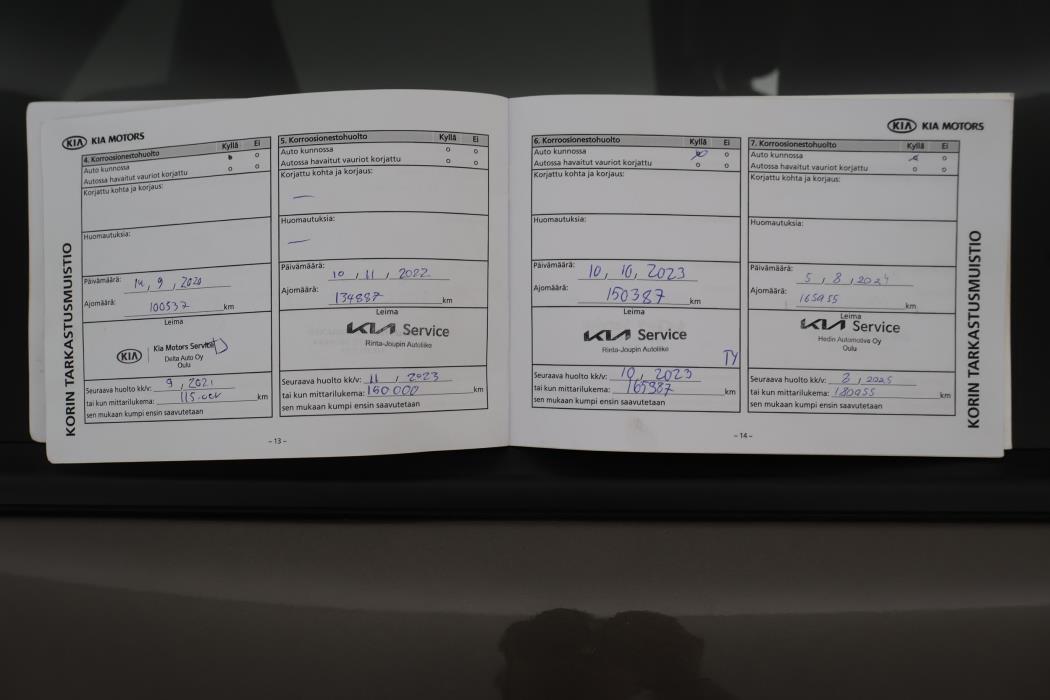 KIA KIA MOTORS
KORIN TARKASTUSMUISTIO
4. Korroosionestohuolto Kyllä Ei
Auto kunnossa
Autossa havaitut vauriot korjattu
Korjattu kohta ja korjaus:
Huomautuksia:
Päivämäärä: 14, 9, 2020
Ajomäärä: 100537 km
Leima
KIA Kia Motors Service
Delta Auto Oy
Oulu
Seuraava huolto kk/v: 9, 2021
tai kun mittarilukema: km
sen mukaan kumpi ensin saavutetaan
5. Korroosionestohuolto Kyllä Ei
Auto kunnossa
Autossa havaitut vauriot korjattu
Korjattu kohta ja korjaus:
—
Huomautuksia:
—
Päivämäärä: 10, 11, 2022
Ajomäärä: 134887 km
Leima
KIA Service
Rinta-Joupin Autoliike
Seuraava huolto kk/v: 11, 2023
tai kun mittarilukema: 150 000 km
sen mukaan kumpi ensin saavutetaan
- 13 -
KIA KIA MOTORS
6. Korroosionestohuolto Kyllä Ei
Auto kunnossa
Autossa havaitut vauriot korjattu
Korjattu kohta ja korjaus:
Huomautuksia:
Päivämäärä: 10, 10, 2023
Ajomäärä: 150387 km
Leima
KIA Service
Rinta-Joupin Autoliike
TY
Seuraava huolto kk/v: 10, 2023
tai kun mittarilukema: 165387 km
sen mukaan kumpi ensin saavutetaan
7. Korroosionestohuolto Kyllä Ei
Auto kunnossa
Autossa havaitut vauriot korjattu
Korjattu kohta ja korjaus:
Huomautuksia:
Päivämäärä: 5, 8, 2024
Ajomäärä: 165955 km
Leima
KIA Service
Hedin Automotive Oy
Oulu
Seuraava huolto kk/v: 8, 2025
tai kun mittarilukema: 180955 km
sen mukaan kumpi ensin saavutetaan
- 14 -
KORIN TARKASTUSMUISTIO